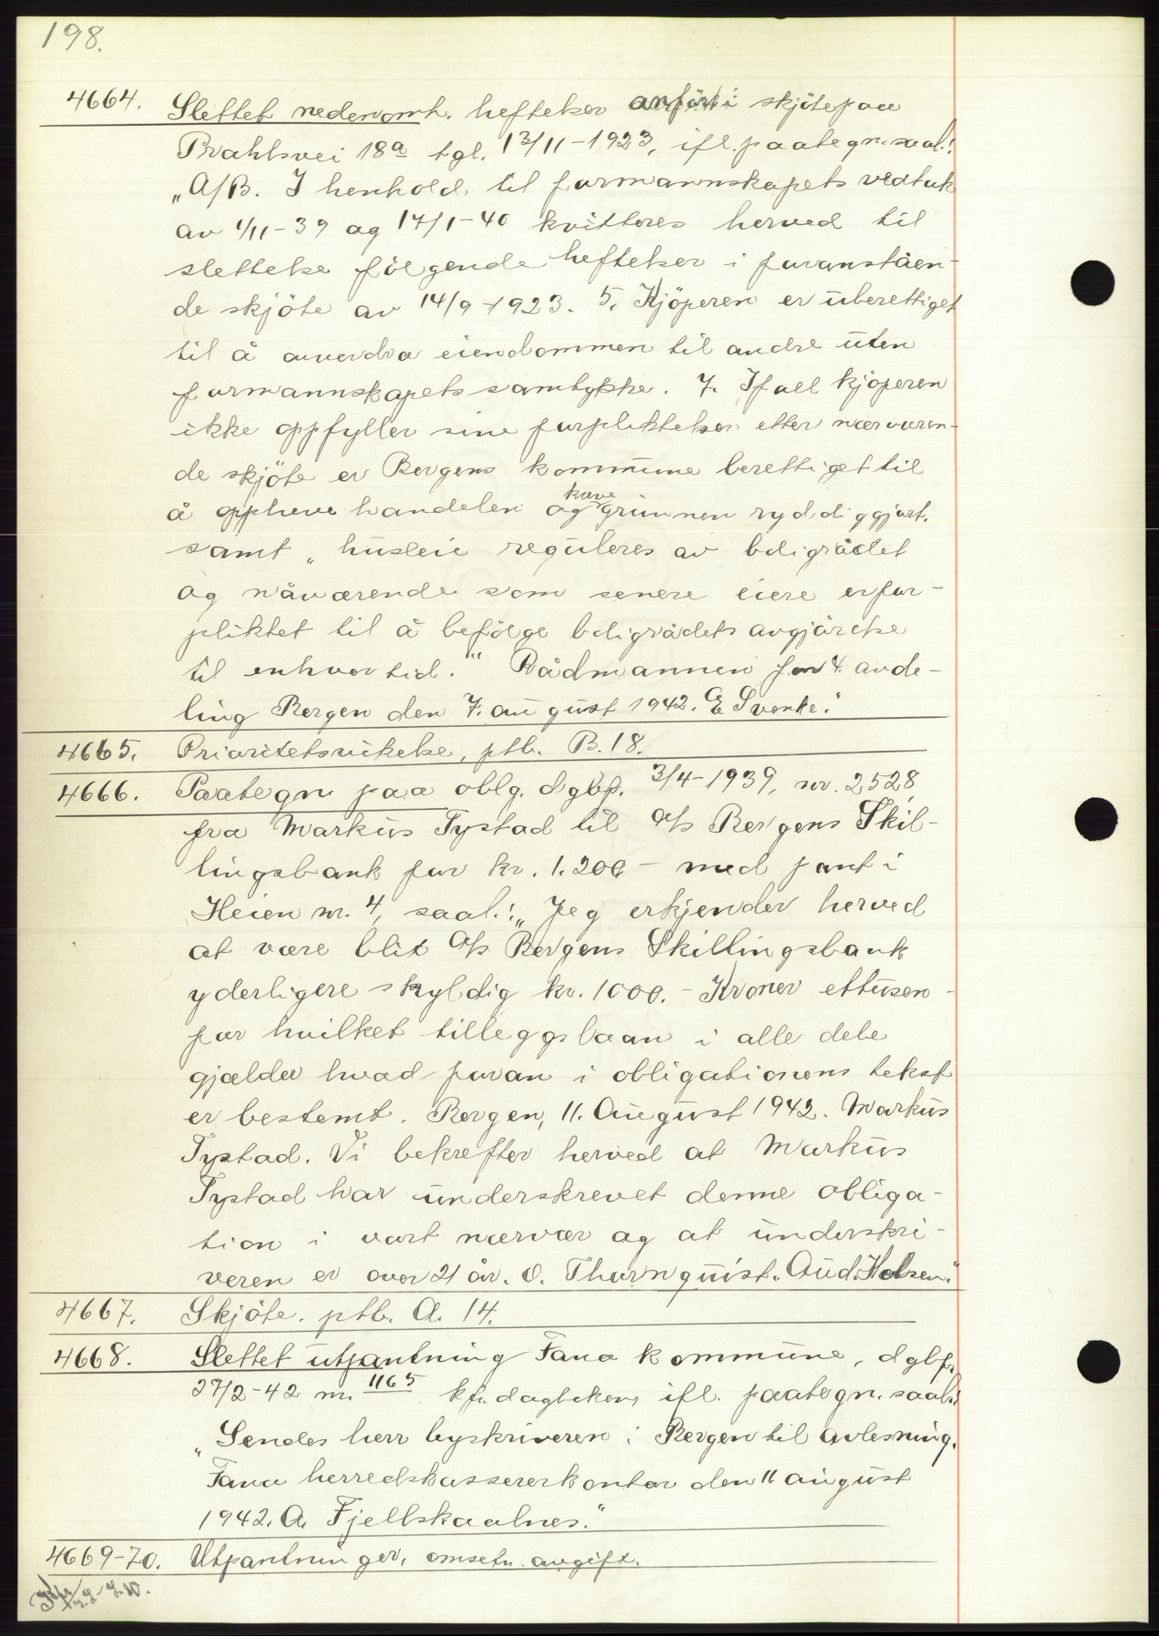 198.
4664. Slettet nedenomh. heftelser anført i skjöte paa
Brahlsvei 18a tgl. 13/11-1923, ifl. paategn. saal:
„A/B. I henhold til formannskapets vedtak
av 1/11-39 og 17/1-40 kvitteres herved til
slettelse fölgende heftelser i foranståen-
de skjöte av 14/9-1923. 5. Kjöperen er uberettiget
til å avendra eiendommen til andre uten
formannskapets samtykke. 7. Ifall kjöperen
ikke oppfyller sine forpliktelser etter nærværen-
de skjöte er Bergens kommune berettiget til
å oppheve handelen og kræve grunnen ryddiggjort.
samt „husleie reguleres av boligrådet
og nåværende som senere eiere er for-
pliktet til å befölge boligrådets avgjörelse
til enhver tid." Rådmannen for 4. avde-
ling Bergen den 7. august 1942. E Svenke."
4665. Prioritetsvikelse, ptb. B. 18.
4666. Paategn paa oblg. dgbf. 3/4-1939, nr. 2528
fra Markus Tystad til A/s Bergens Skil-
lingsbank for kr. 1.200 - med pant i
Heien nr. 4, saal.: „Jeg erkjender herved
at være blit A/s Bergens Skillingsbank
yderligere skyldig kr. 1000. - Kroner ettusen -
for hvilket tilleggslaan i alle dele
gjælder hvad foran i obligationens tekst
er bestemt. Bergen, 11. August 1942. Markus
Tystad. Vi bekrefter herved at Markus
Tystad har underskrevet denne obliga-
tion i vort nærvær og at underskri-
veren er over 21 år. O. Thornquist. Aud. Holsen."
4667. Skjöte. ptb. A. 14.
4668. Slettet utpantning Fana kommune, dgbf.
27/2-42 nr. 1165 kfr. dagboken, ifl. paategn. saal:
„Sendes herr byskriveren i Bergen til avlesning.
Fana herredskassererkontor den 11 august
1942. A. Fjellskaalnes."
4669-70. Utpantninger, omsetn. avgift.